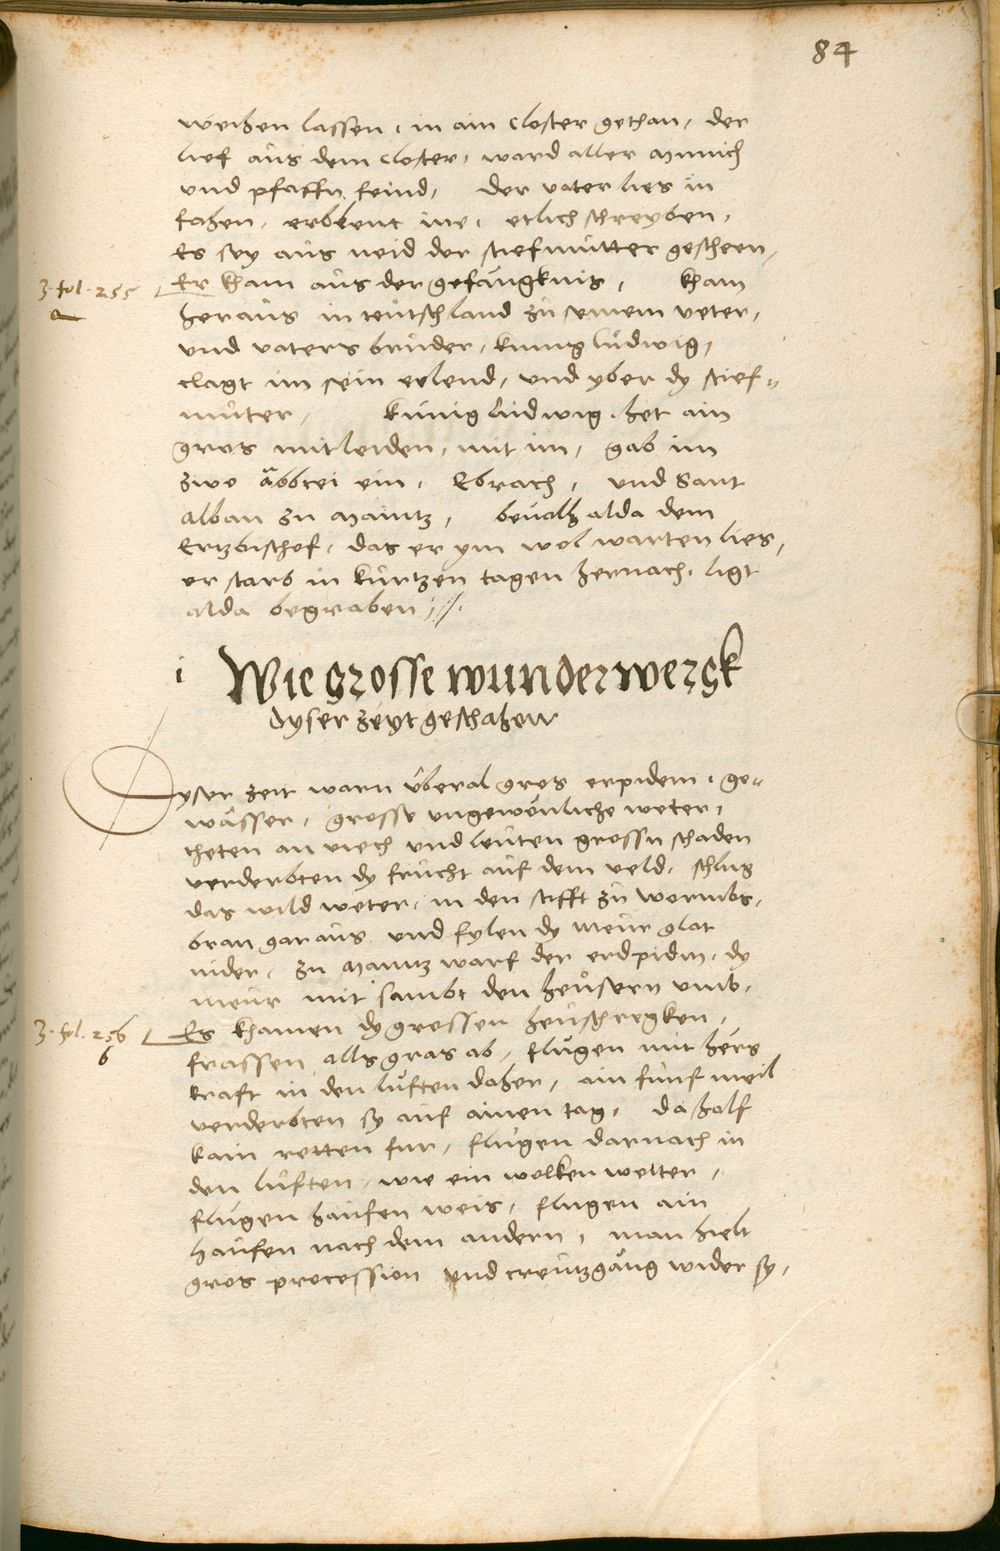 84
weihen lassen, in ain closter gethan, der
lief aus dem closter, ward aller munich
und pfaffn feind, der vater lies in
fahen, erblent ine, etlich schreyben,
Es sey aus neid der stiefmutter gescheen,
3. fol. 255
a
Er kham aus der gefängknis, kham
heraus in teutschland zu seinem veter,
und vaters bruder, kunig ludwig,
clagt im sein ellend, und yber dy stief-
muter, künig ludwig, het ain
gros mitleiden, mit im, gab im
zwo äbbtei ein, Ebrach, und Sant
Alban zu Maintz, bevalh alda dem
Ertzbischof, das er ym wol warten lies,
er starb in kurtzen tagen hernach, ligt
alda begraben
i Wie grosse wunderwergk
dyser zeyt geschahen
Dyser zeit warn überal gros erpidem, ge-
wässer, grosse ungewönliche weter,
theten an viech und leuten grossn schaden
verderbten dy frucht auf dem veld, schlug
das wild weter, in den stifft zu wormbs,
bran gar aus und fylen dy meur glat
nider, zu Maintz warf der erdpidm, dy
meur mit sambt den heusern umb,
3. fol. 256
b
Es khamen dy grossen heuschregken,
frassen alls gras ab, flugen mit hers
kraft in den luften daher, ain funf meil
verderbten sy auf ainen tag, da half
kain retten fur, flugen darnach in
den luften, wie ein wolken wetter,
flugen haufen weis, flugen ain
haufen nach dem andern, man hielt
gros procession und creutzgäng wider sy,